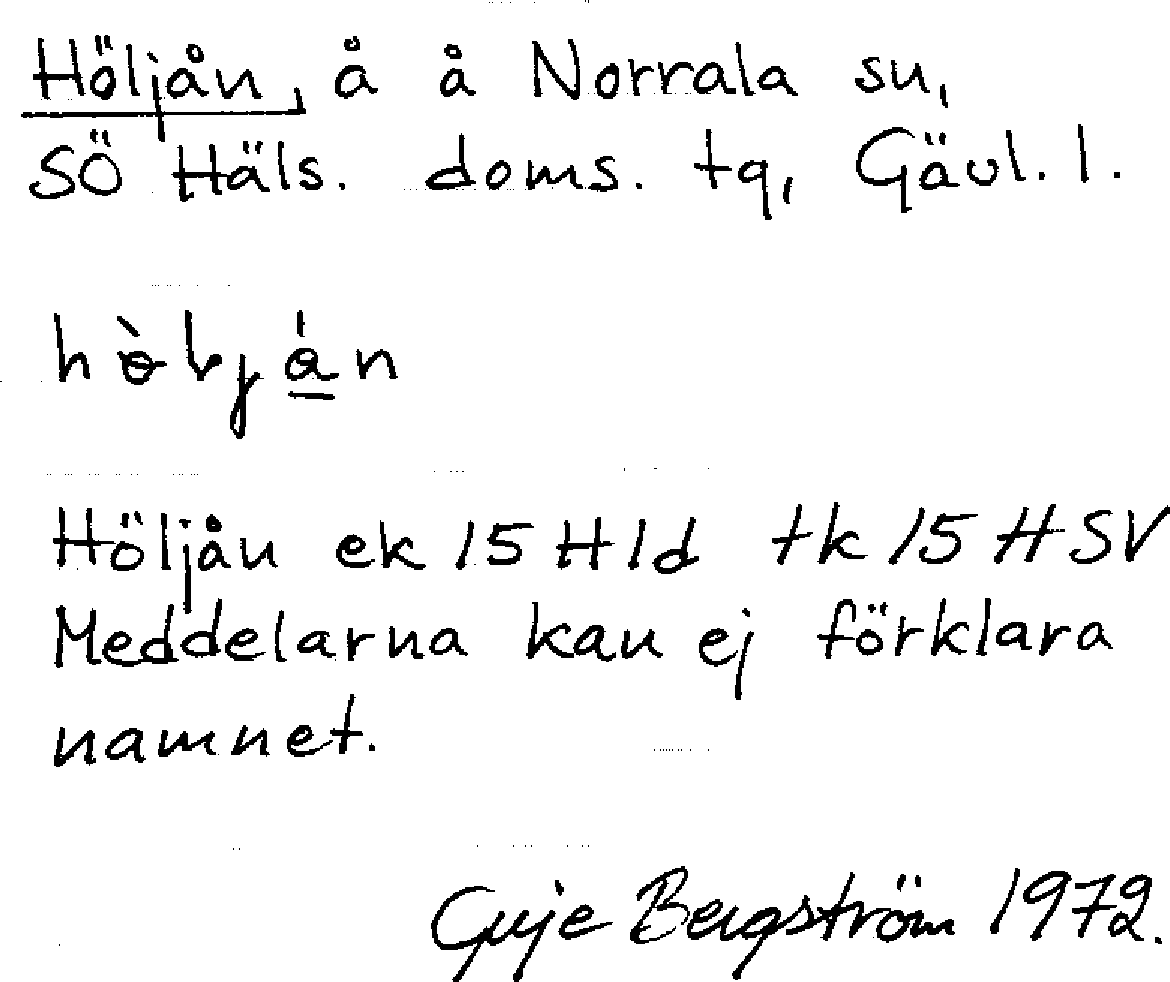 Höljån, å å Norrala sn,
SÖ Häls. doms. tg, Gävl. l.
Höljån ek 15 H1d tk 15 H SV
Meddelarna kan ej förklara
namnet.
Bergström 1972.